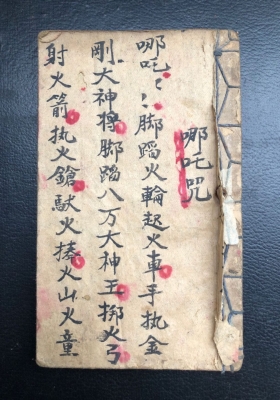 哪吒咒
哪吒〻〻脚蹈火輪起火車手执金
剛大神将脚蹈八万大神王挷火弓
射火箭执火鎗馱火捧火山火童